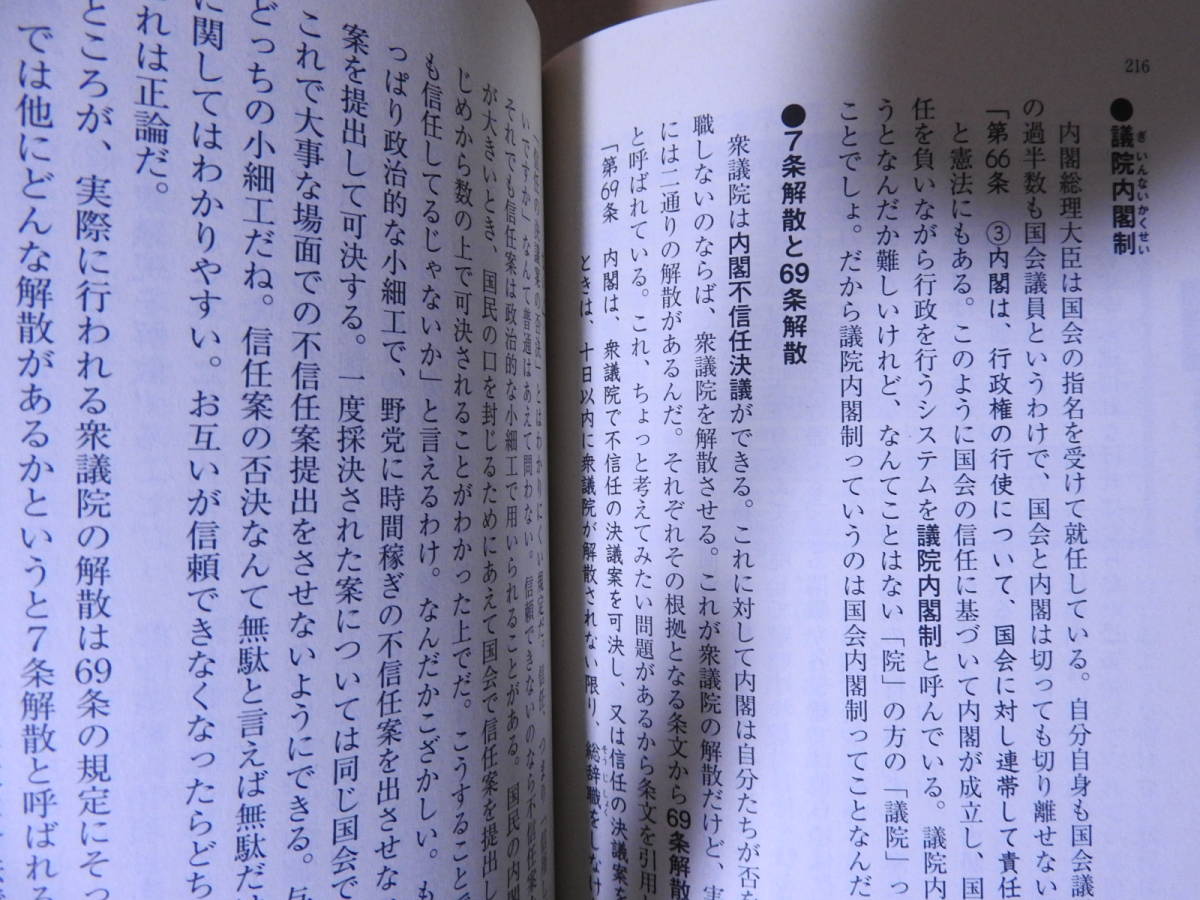 216
●議院内閣制
ぎいんないかくせい
内閣総理大臣は国会の指名を受けて就任している。自分自身も国会議
の過半数も国会議員というわけで、国会と内閣は切っても切り離せない
「第66条 ③内閣は、行政権の行使について、国会に対し連帯して責任
と憲法にもある。このように国会の信任に基づいて内閣が成立し、国
任を負いながら行政を行うシステムを議院内閣制と呼んでいる。議院内
うとなんだか難しいけれど、なんてことはない「院」の方の「議院」っ
ことでしょ。だから議院内閣制っていうのは国会内閣制ってことなんだ
●7条解散と69条解散
衆議院は内閣不信任決議ができる。これに対して内閣は自分たちが否を
職しないのならば、衆議院を解散させる。これが衆議院の解散だけど、実
には二通りの解散があるんだ。それぞれその根拠となる条文から69条解散
と呼ばれている。これ、ちょっと考えてみたい問題があるから条文を引用
「第69条 内閣は、衆議院で不信任の決議案を可決し、又は信任の決議案を
ときは、十日以内に衆議院が解散されない限り、総辞職をしなけ
そうじしょく
の決議案の否決」とはわかりにくい規定だ。信任、つまり「信頼し
いですか」なんて普通はあえて問わない。信頼できないのなら不信任案
それでも信任案は政治的な小細工で用いられることがある。国民の内閣
が大きいとき、国民の口を封じるためにあえて国会で信任案を提出し
じめから数の上で可決されることがわかった上でだ。こうすることで
も信任してるじゃないか」と言えるわけ。なんだかこざかしい。も
っぱり政治的な小細工で、野党に時間稼ぎの不信任案を出させな
案を提出して可決する。一度採決された案については同じ国会で
これで大事な場面での不信任案提出をさせないようにできる。与
どっちの小細工だね。信任案の否決なんて無駄と言えば無駄だけ
に関してはわかりやすい。お互いが信頼できなくなったらどち
れは正論だ。
ところが、実際に行われる衆議院の解散は69条の規定にそっ
では他にどんな解散があるかというと7条解散と呼ばれる